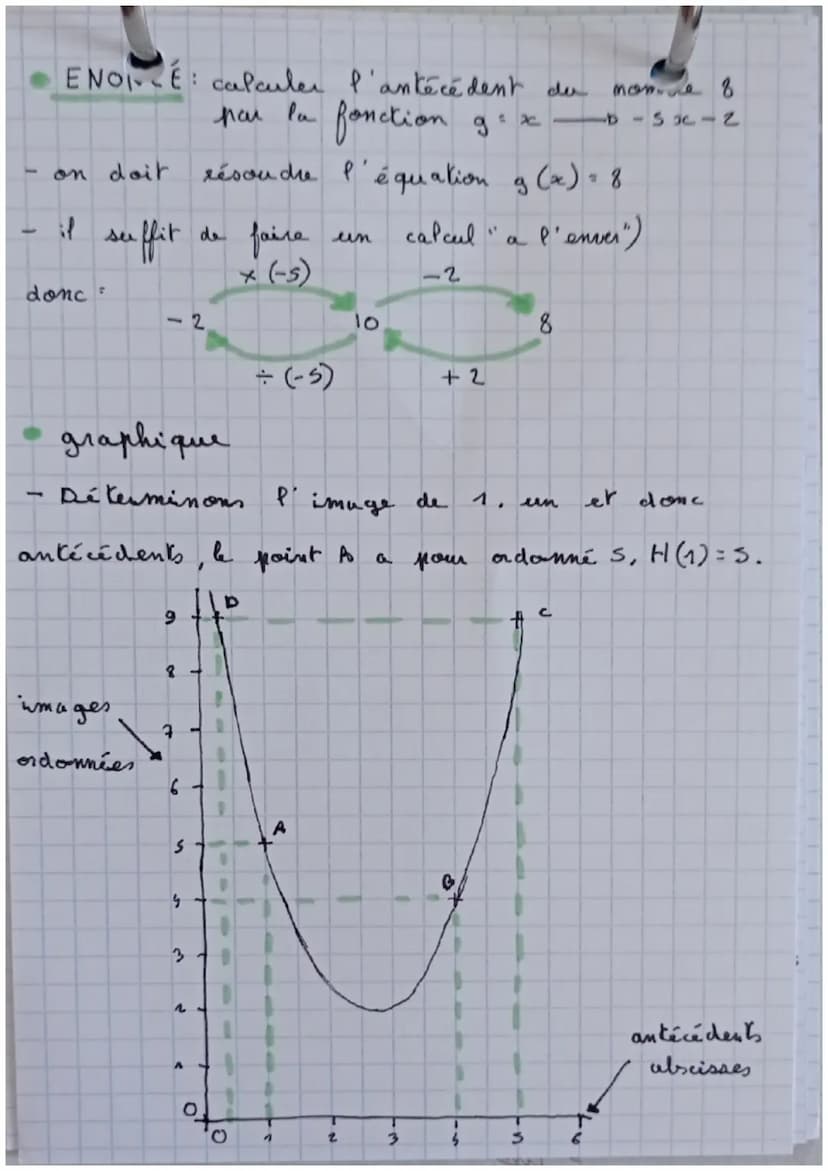 ENONCÉ : calculer l'antécédent du nombre 8
par la fonction g : x → -5x-2
- on doit résoudre l'équation g(x) = 8
- il suffit de faire un calcul "a l'enver")
donc :
× (-5) -2
-2 10 8
÷ (-5) +2
graphique
- Déterminons l'image de 1. un et donc
antécédents, le point A a pour ordonné 5, H(1) = 5.
D C
9
8
images
7
ordonnées
6
A
5
B
4
3
2
antécédents
1
abscisses
0
0 1 2 3 4 5 6